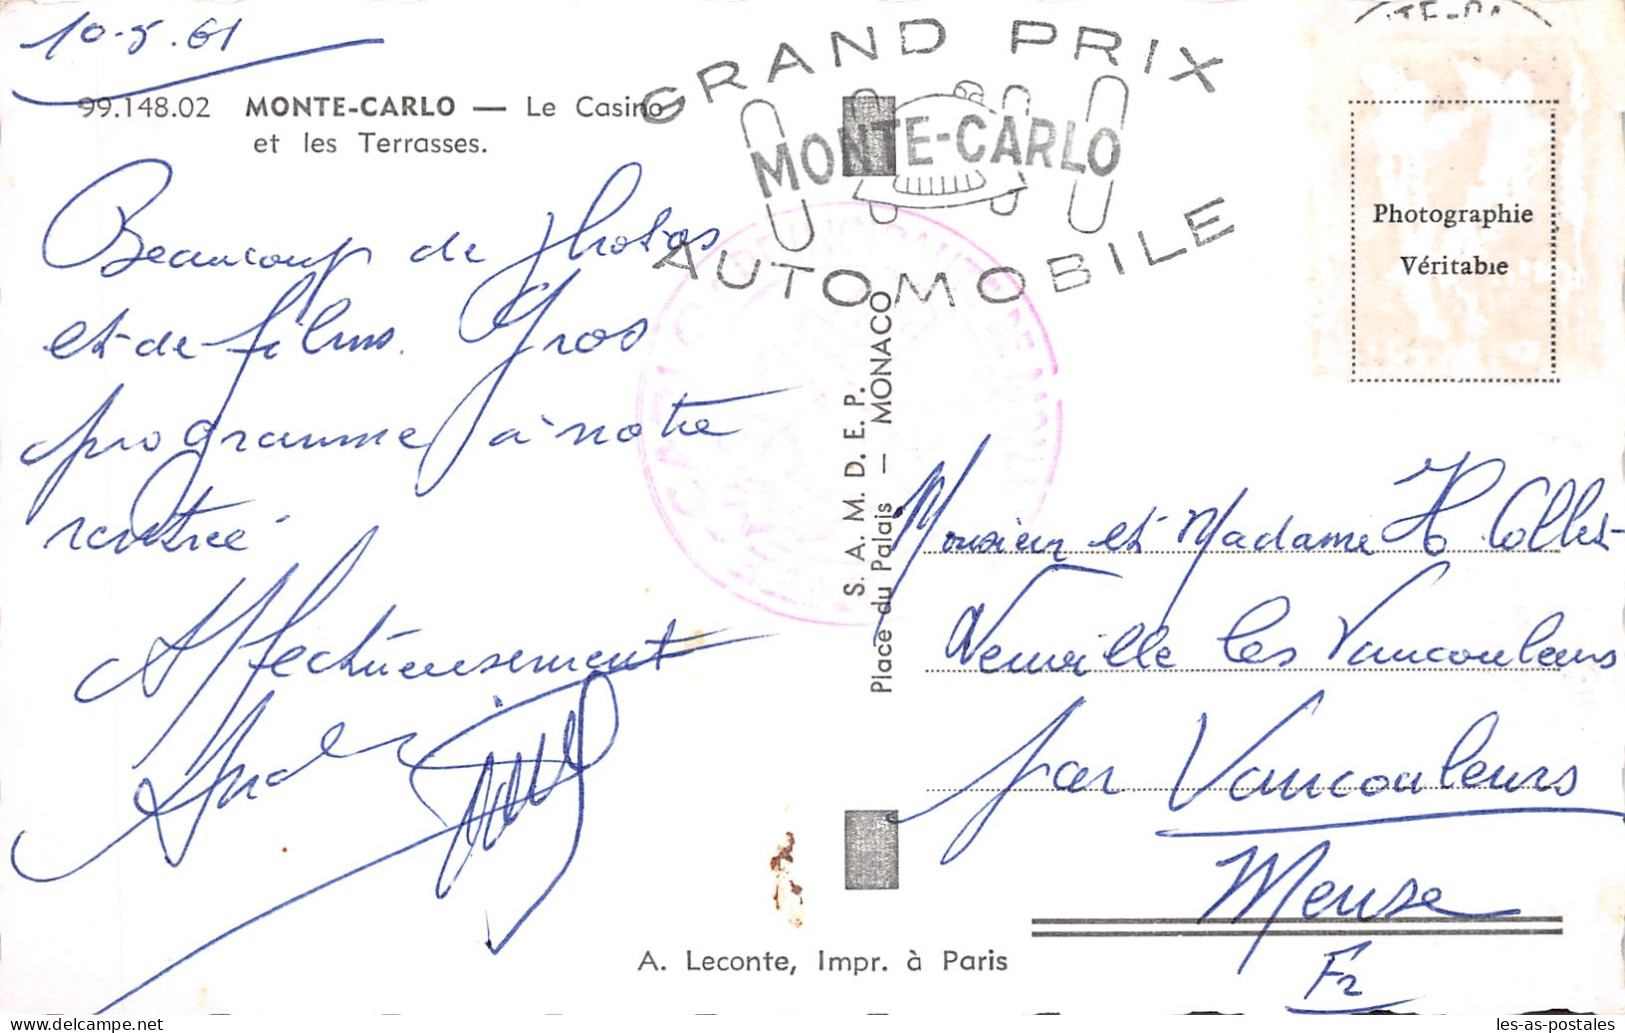 10-5-61
99.148.02 MONTE-CARLO — Le Casino
et les Terrasses.
Beaucoup de photos
et de films. Gros
programme à notre
rentrée.
Affectueusement
GRAND PRIX
MONTE-CARLO
AUTOMOBILE
S. A. M. D. E. P.
Place du Palais — MONACO
Photographie
Véritable
Monsieur et Madame H Collet
Neuville les Vaucouleurs
par Vaucouleurs
Meuse
Fr
A. Leconte, Impr. à Paris
les-as-postales